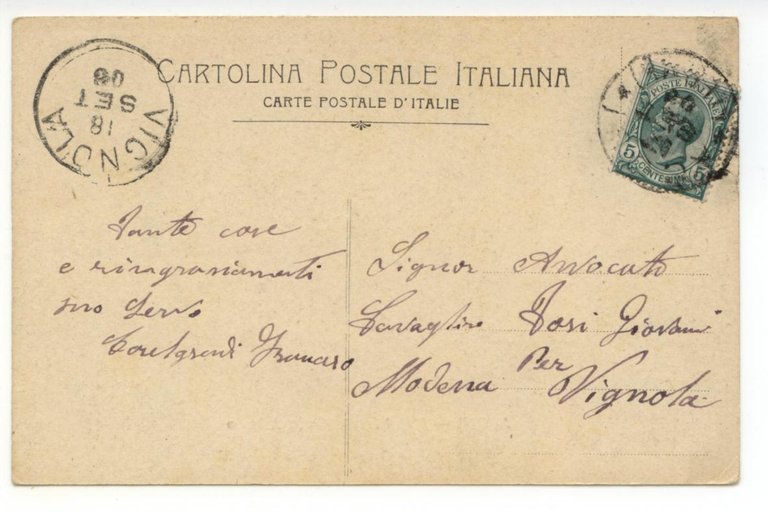 CARTOLINA POSTALE ITALIANA
CARTE POSTALE D'ITALIE
VIGNOLA
18
SET
08
POSTE ITALIANE
5 CENTESIMI 5
Tante cose
e ringraziamenti
suo servo
Francesco
Signor Avvocato
Cavagliere Tosi Giovani
Modena Per
Vignola